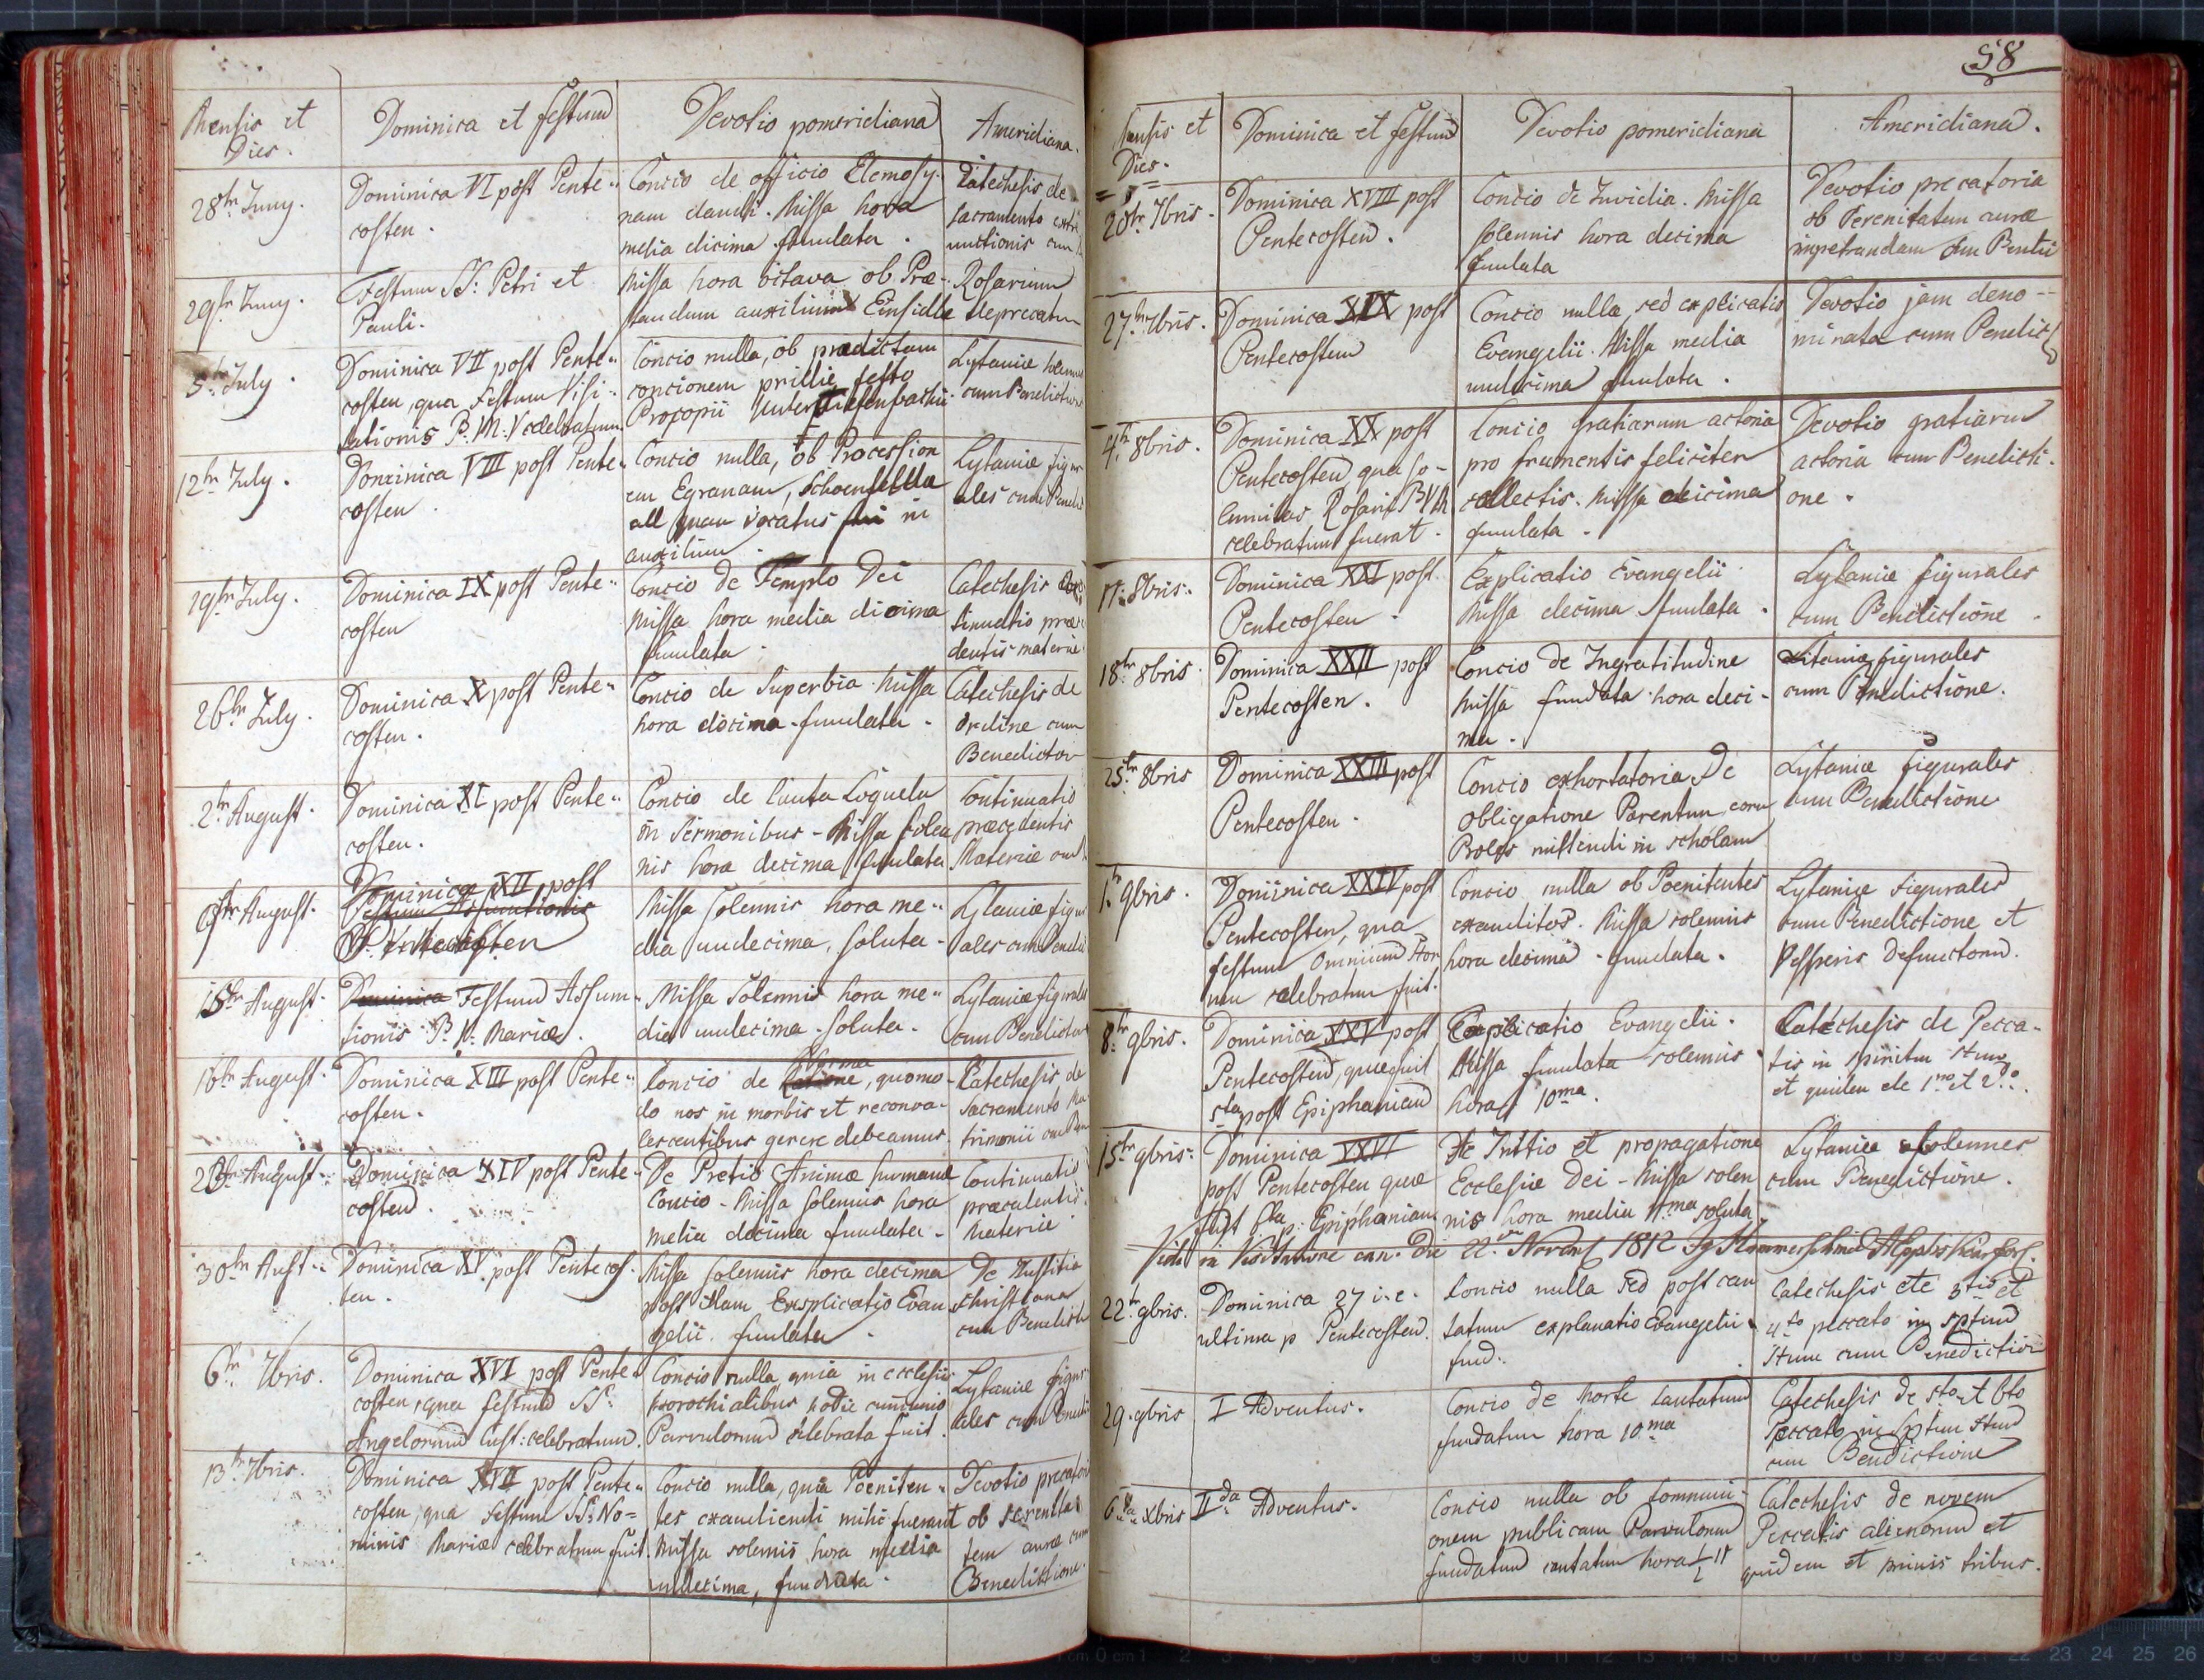 Mensis et
Dies.
Dominica et festum
Devotio pomeridiana
Ameridiana.
28br Juny.
Dominica VI post Pente-
costen.
Concio de officio Elemosy-
nam dandi. Missa hora
media decima fundata.
Catechesis de
sacramento
unctionis cum
29br Juny.
Festum SS: Petri et
Pauli.
Missa hora octava ob Præ-
standum auxilium Einsidle
Rosarium
deprecatum
5. July.
Dominica VII post Pente-
costen, qua Festum Visi-
tationis B: M: V celebratum.
Concio nulla, ob prædictam
concionem pridie festo
Procopii
Lytaniæ solennes
cum Benedictione
12br July.
Dominica VIII post Pente-
costen.
Concio nulla, ob Procession
em Egranam,
ad quam vocatus fui in
auxilium.
Lytaniæ figur
ales cum Bened
19br July.
Dominica IX post Pente-
costen
Concio de Templo Dei
Missa hora media decima
fundata.
Catechesis Con
tinuatio præce
dentis materiæ.
26br July.
Dominica X post Pente-
costen.
Concio de Superbia. Missa
hora decima fundata.
Catechesis de
Ordine cum
Benediction
2br August.
Dominica XI post Pente-
costen.
Concio de cauta Loquela
in Sermonibus - Missa solen
nis hora decima fundata
Continuatio
præcedentis
Materiæ cum
9br August.
Dominica XII post
Festum Assumtionis
Pentecosten
Missa solennis hora me-
dia undecima, soluta.
Lytaniæ figur
ales cum Bened
15br August.
Dominica Festum Assum-
tionis B. V. Mariæ.
Missa Solennis hora me-
dia undecima. soluta.
Lytaniæ figurales
cum Benediction
16br August.
Dominica XIII post Pente-
costen.
Concio de Ratione, quomo-
do nos in morbis et reconva-
lescentibus gerere debeamus.
Catechesis de
Sacramento Ma
trimonii cum Ben
23br August.
Dominica XIV post Pente-
costen.
De Pretio Animæ humanæ
Concio - Missa solennis hora
media decima fundata.
Continuatio
præcedentis
Materiæ
30br Aust.
Dominica XV post Pentecos-
ten.
Missa solennis hora decima
post illam Explicatio Evan
gelii. fundata.
De Justitia
christiana
cum Benedicti
6br 7bris.
Dominica XVI post Pente-
costen, qua festum SS:
Angelorum Cust: celebratum.
Concio nulla, quia in ecclesiis
parochialibus hodie communio
Parvulorum celebrata fuit.
Lytaniæ figur
ales cum Benedi
13br 7bris.
Dominica XVII post Pente-
costen, qua Festum SS: No-
minis Mariæ celebratum fuit.
Concio nulla, quia Poeniten-
tes exaudiendi mihi fuerant
Missa solennis hora media
undecima, fundata.
Devotio precatori
ob serenita
tem auræ cum
Benedictione.
58
Mensis et
Dies.
Dominica et festum
Devotio pomeridiana
Ameridiana.
20br 7bris.
Dominica XVIII post
Pentecosten.
Concio de Invidia. Missa
solennis hora decima
fundata
Devotio precatoria
ob Serenitatem auræ
impetrandam cum Benedi
27br 7bris.
Dominica XIX post
Pentecosten
Concio nulla sed explicatio
Evangelii. Missa media
undecima fundata.
Devotio jam deno-
minata cum Benedict
4br 8bris.
Dominica XX post
Pentecosten, qua so-
lemnitas Rosarii B V M
celebratum fuerat.
Concio gratiarum actoria
pro frumentis feliciter
collectis. Missa decima
fundata.
Devotio gratiarum
actoria cum Benedicti-
one.
11. 8bris.
Dominica XXI post
Pentecosten.
Explicatio Evangelii.
Missa decima fundata.
Lytaniæ figurales
cum Benedictione.
18br 8bris.
Dominica XXII post
Pentecosten.
Concio de Ingratitudine
Missa fundata hora deci-
ma.
Litaniæ figurales
cum Benedictione.
25br 8bris
Dominica XXIII post
Pentecosten.
Concio exhortatoria De
obligatione Parentum, eorum
Proles mittendi in scholam
Lytaniæ figurales
cum Benedictione.
1. 9bris.
Dominica XXIV post
Pentecosten, qua
festum Omnium Stor
um celebratum fuit.
Concio nulla ob Poenitentes
exauditos. Missa solennis
hora decima. fundata.
Lytaniæ figurales
cum Benedictione et
Vesperis Defunctorum.
8br 9bris.
Dominica XXV post
Pentecosten, quæ fuit
5ta post Epiphaniam
Explicatio Evangelii.
Missa fundata solennis.
hora 10ma.
Catechesis de Pecca-
tis in spiritum Stum
et quidem de 1mo et 2do.
15br 9bris.
Dominica XXVI
post Pentecosten quæ
fuit 6ta p. Epiphaniam
De Initio et propagatione
Ecclesiæ Dei - Missa solen
nis hora media 11ma soluta
Lytaniæ solennes
cum Benedictione.
Vidi in Visitatione can. die 22. Novemb 1812
22br 9bris.
Dominica 27 i. e.
ultima p Pentecosten.
Concio nulla sed post can
tatum explanatio Evangelii.
fund.
Catechesis de 3tio et
4to peccato in sptum
Stum cum Benediction
29. 9bris
I Adventus.
Concio de Morte cantatum
fundatum hora 10ma
Catechesis de 5to et 6to
Peccato in sptum Stum
cum Benedictione
6. xbris
IIda Adventus.
Concio nulla ob Communi-
onem publicam Parvulorum
fundatum cantatum hora ½ 11
Catechesis de novem
Peccatis alienorum et
quidem et primis tribus.